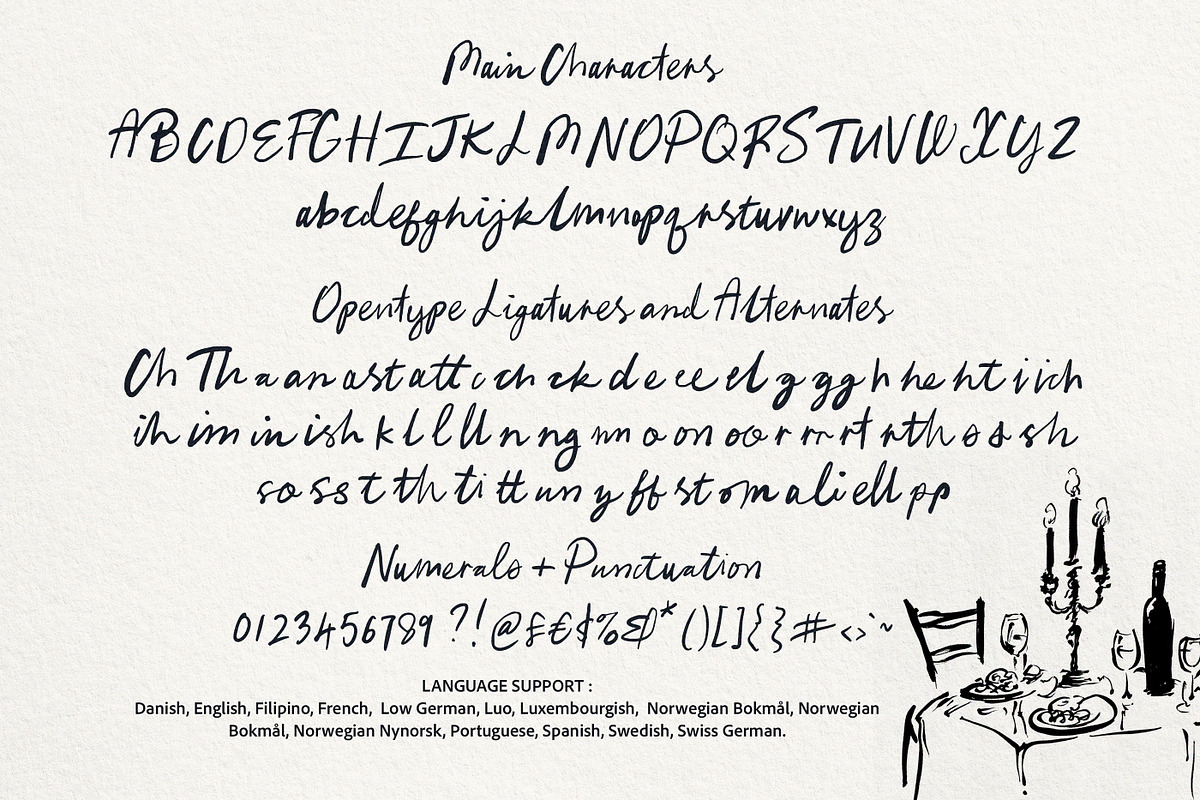 Main Characters
ABCDEFGHIJKLMNOPQRSTUVWXYZ
abcdefghijklmnopqrstuvwxyz
Opentype Ligatures and Alternates
Ch Th a an as t at tt c ch ck d e ee el g gg h he ht i ich
ih im in ish k l l ll n ng nn o on oo r rr rt rth s s sh
so ss t th ti tt un y ff st om ali ell pp
Numerals + Punctuation
0123456789 ?!@£€$%&*()[]{}#<>`~
LANGUAGE SUPPORT :
Danish, English, Filipino, French, Low German, Luo, Luxembourgish, Norwegian Bokmål, Norwegian
Bokmål, Norwegian Nynorsk, Portuguese, Spanish, Swedish, Swiss German.